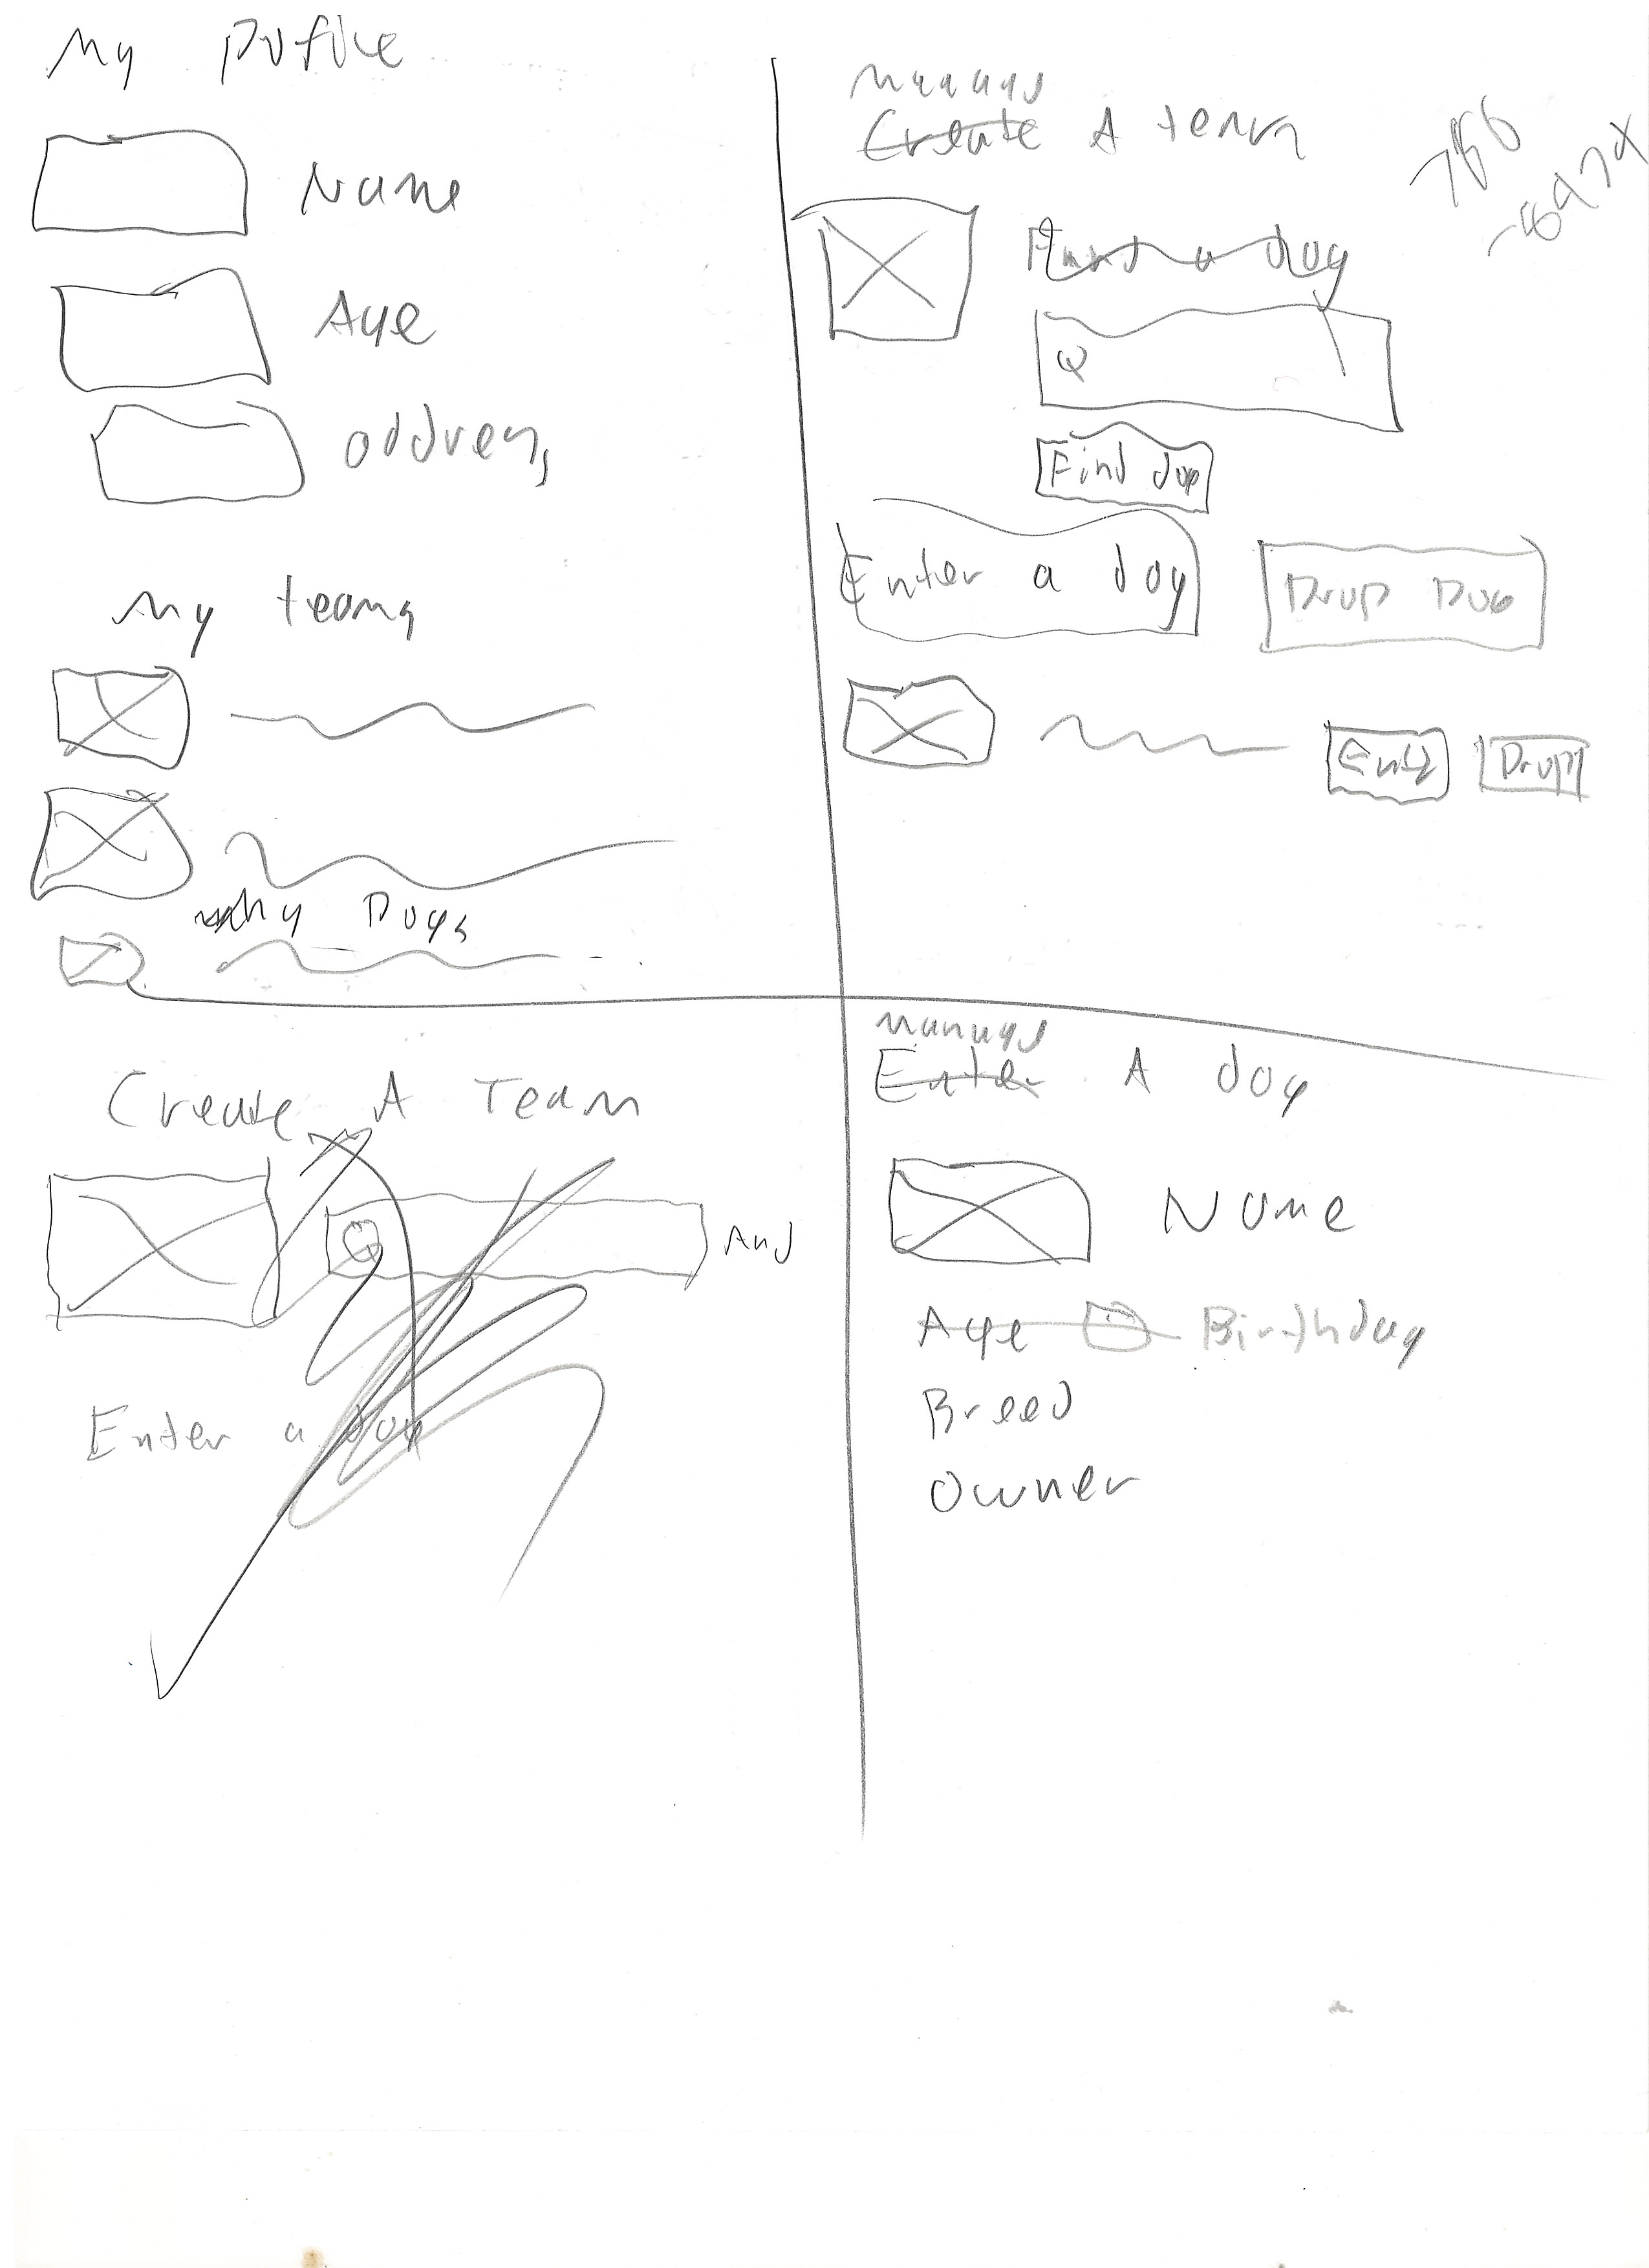 My Profile
Name
Age
address
My teams
My Dogs
Manage
Create A team
Find a dog
Find dog
Enter a dog
Drop Dog
Drop
Create A Team
And
Enter a dog
Manage
Enter A dog
Name
Age Birthday
Breed
Owner